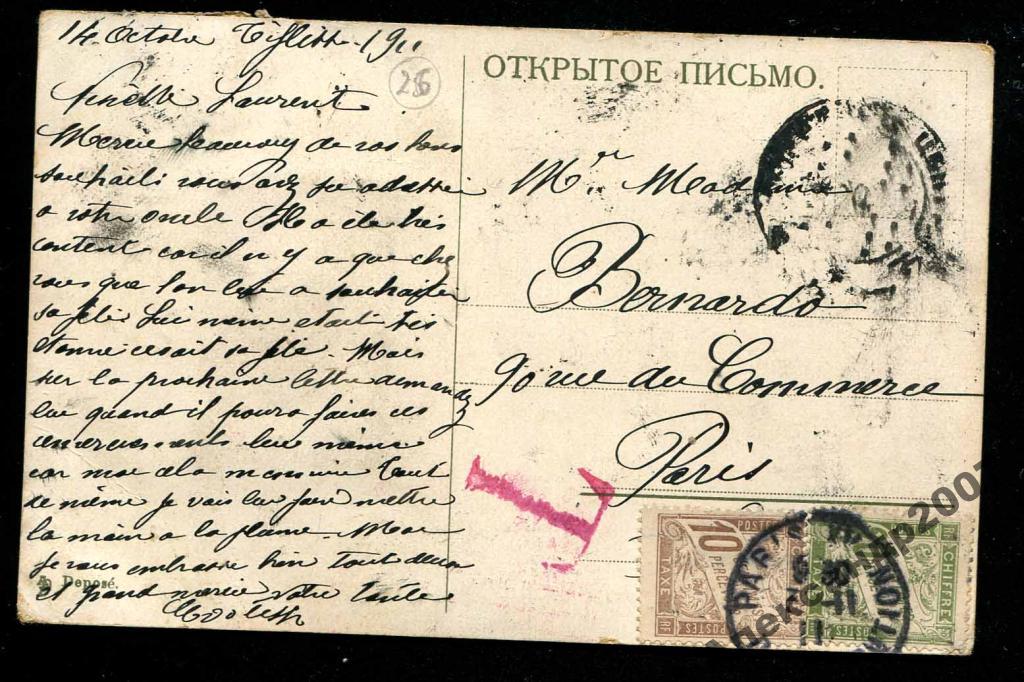 14 Octobre Tiflis 1911
26
Laurent
Merci beaucoup de vos bons
souhaits vous avez
a votre oncle Il a été très
content car il n y a que chez
vous que l'on lui a souhaiter
sa fête Lui même etait très
etonné cesait sa fête. Mais
sur la prochaine lettre demandez
lui quand il poura faires ces
lui même
car moi cela Tout
de même je vais lui faire mettre
la main a la plume. Moi
je vous embrasse bien tout deux
et grand votre tante
Deposé.
ОТКРЫТОЕ ПИСЬМО.
Mr. Madame
Bernardo
90 rue du Commerce
Paris
T
10
POSTES
CHIFFRE
TAXE
PERCEVOIR
POSTES
TAXE
PARIS